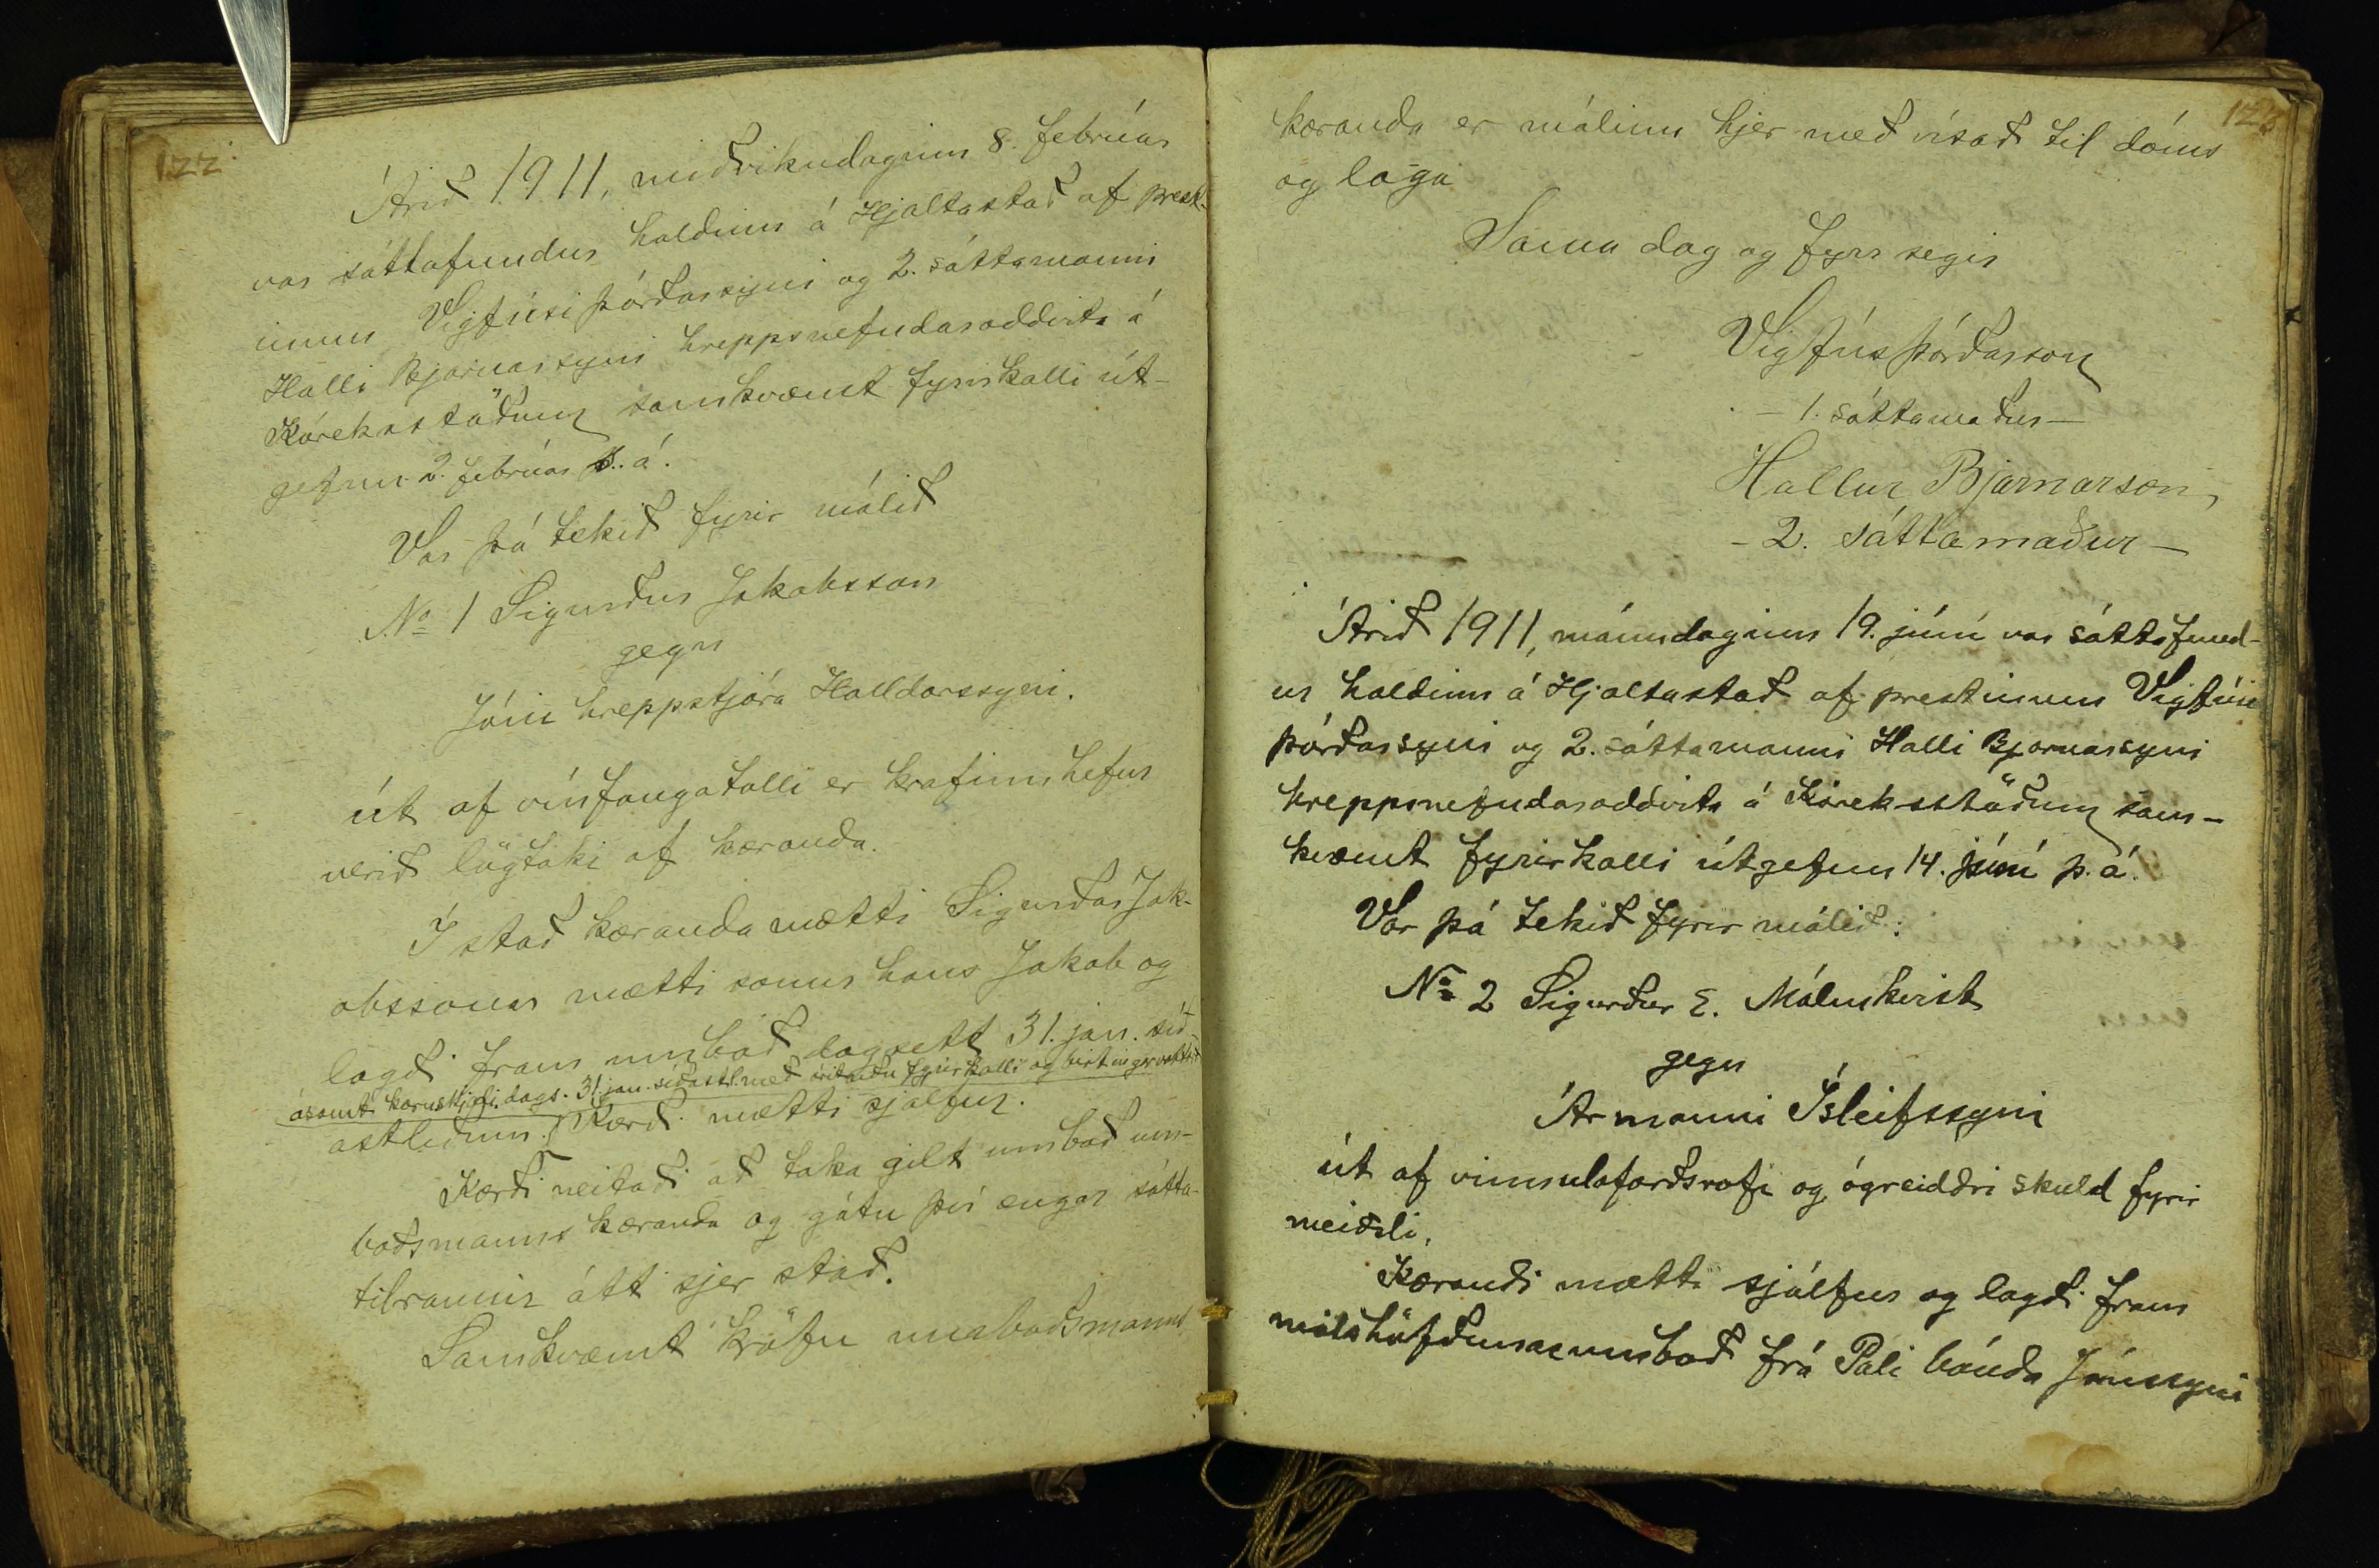 122
Árið 1911, miðvikudaginn 8. febrúar
var sáttafundur haldinn á Hjaltastað af prest-
inum Vigfúsi Þórðarsyni og 2. sáttamanni
Halli Bjarnarsyni hreppsnefndaroddvita á
Kóreksstöðum samkvæmt fyrirkalli út-
gefnu 2. febrúar þ. á.
Var þá tekið fyrir málið
No 1 Sigurður Jakobsson
gegn
Jóni hreppstjóra Halldórssyni.
út af vínfangatolli er krafinn hefur
verið lögtaki af kæranda.
Í stað kæranda mætti Sigurðar Jak-
obssonar mætti sonur hans Jakob og
lagði fram umboð dagsett 31. jan. síð-
ásamt kæruskjali dags. 31. jan. síðastl. með árituðu fyrirkalli og birtingarvottorði
astliðinn. Kærði mætti sjálfur.
Kærði neitaði að taka gilt umboð um-
boðsmanns kæranda og gátu því engar sátta-
tilraunir átt sjer stað.
Samkvæmt kröfu umboðsmanns
123
kæranda er málinu hjer með vísað til dóms
og laga
Sama dag og fyrr segir
Vigfús Þórðarson
- 1. sáttamaður -
Hallur Bjarnarson,
- 2. sáttamaður -
Árið 1911, mánudaginn 19. júní var sáttafund-
ur haldinn á Hjaltastað af prestinum Vigfúsi
Þórðarsyni og 2. sáttamanni Halli Bjarnarsyni
hreppsnefndaroddvita á Kóreksstöðum sam-
kvæmt fyrirkalli útgefnu 14. júní þ. á.
Var þá tekið fyrir málið:
No 2 Sigurður E. Málmkvist
gegn
Ármanni Ísleifssyni
út af vinnuloforðsrofi og ógreiddri skuld fyrir
meiðsli.
Kærandi mætti sjálfur og lagði fram
málshöfðunarumboð frá Páli bónda Jónssyni